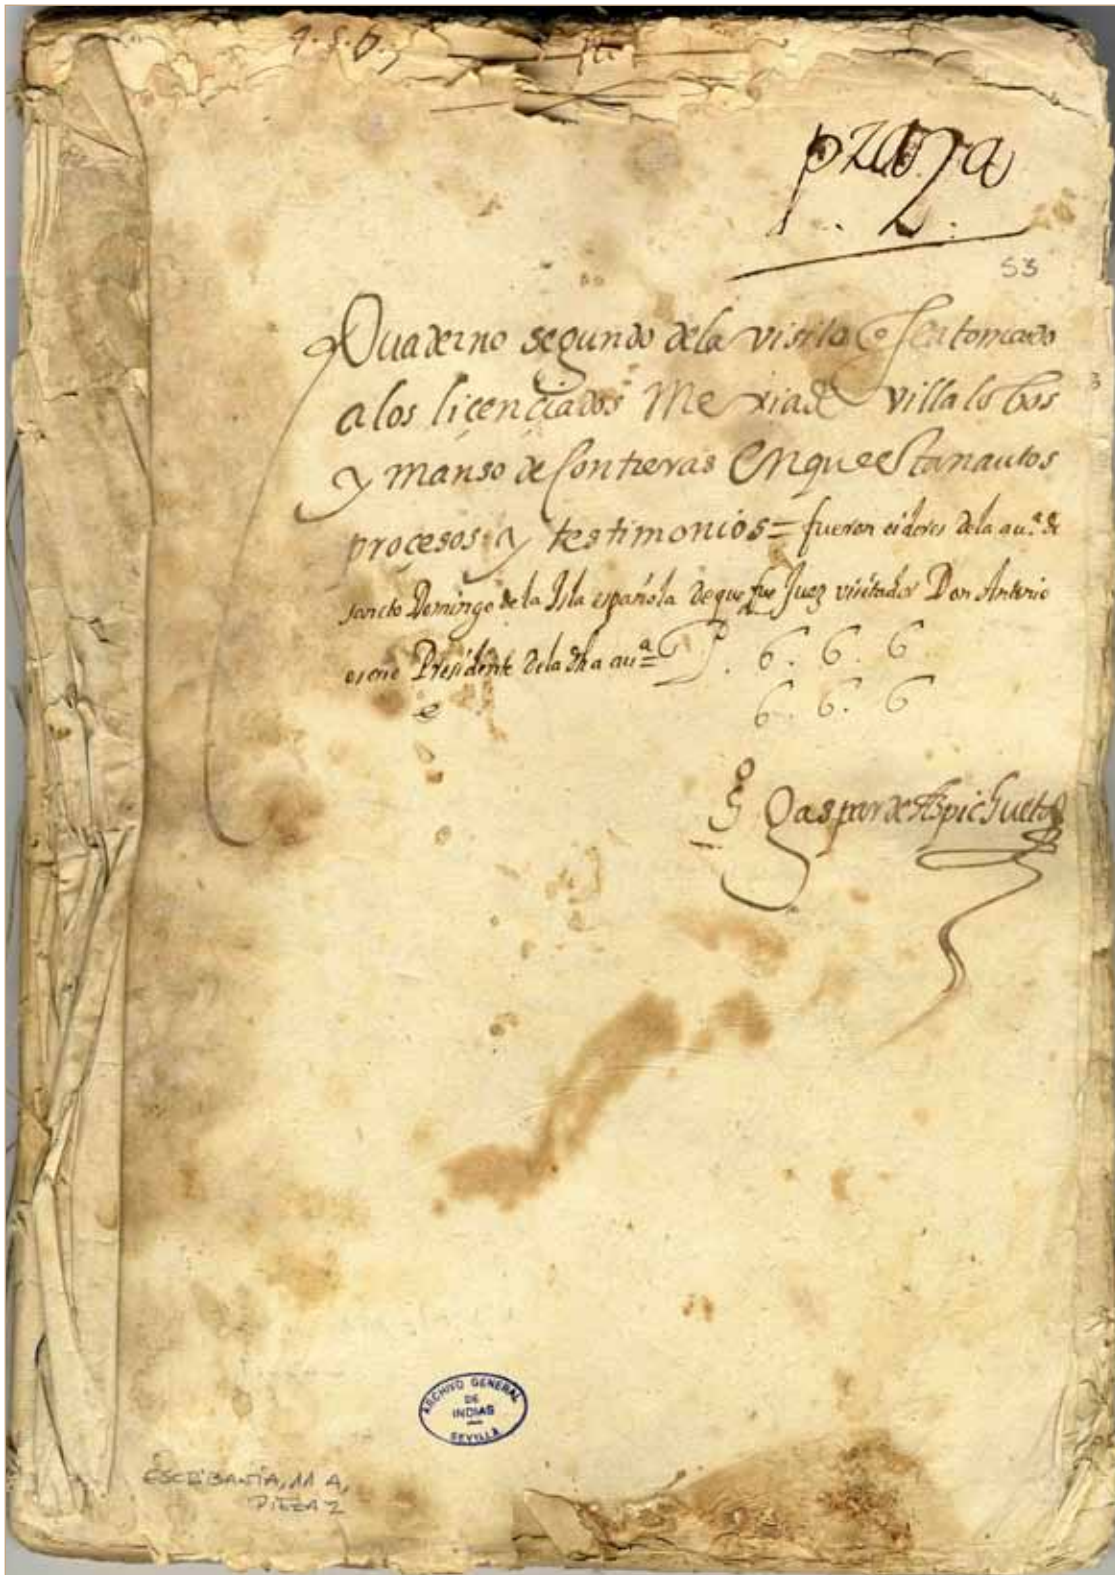 4. 5. 6.
pza 2a
2.
53
Quaderno segundo dela visita q se a tomado
alos licenciados Mexia de villalobos
y manso de Contreras Enque estan autos
procesos y testimonios = fueron oidores dela au.ª de
sancto Domingo de la Isla española de que fue Juez visitador Don Antonio
osorio Presidente dela dha au.ª
6. 6. 6
6. 6. 6
Gaspar de Azpichueta
ARCHIVO GENERAL
DE
INDIAS
SEVILLA
ESCRIBANÍA, 11 A,
PIEZA 2